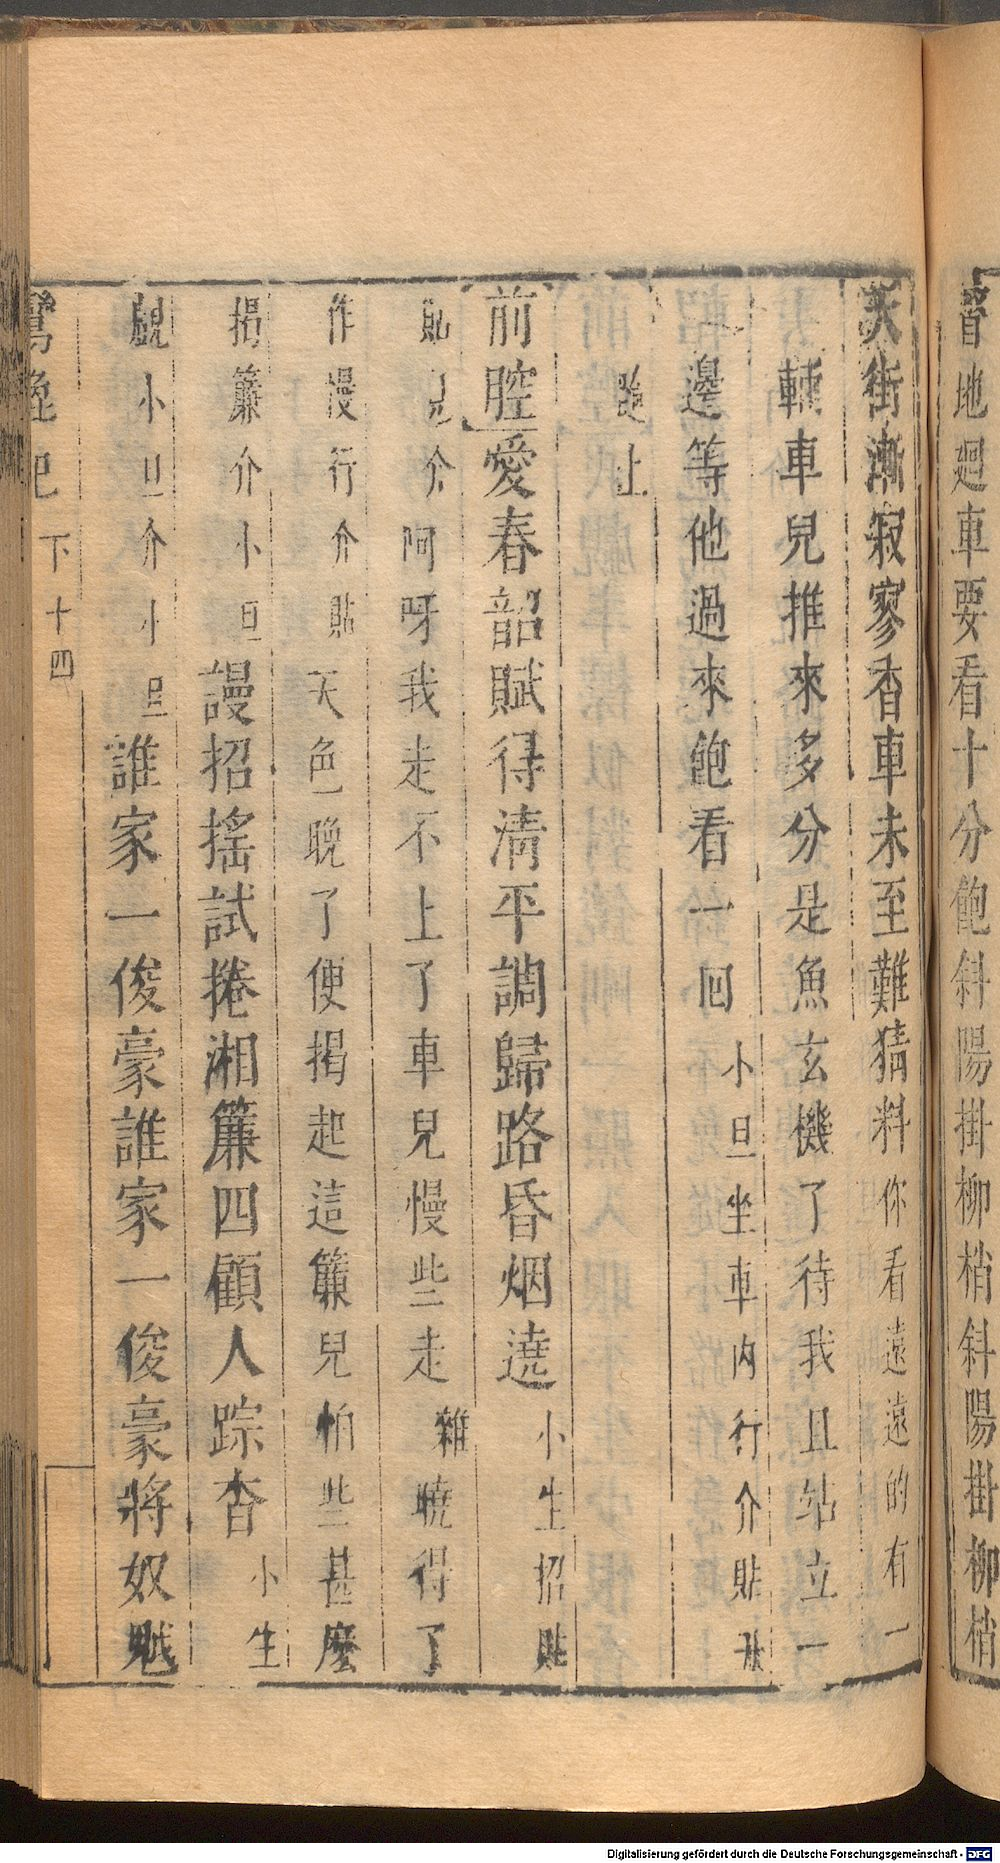 瞥地廻車要看十分飽斜陽掛柳梢斜陽掛柳梢
天街漸寂寥香車未至難猜料你看遠遠的有一
輛車兒推來多分是魚玄機了待我且站立一
邊等他過來飽看一回小旦坐車內行介貼雜
隨上
前腔愛春韶賦得清平調歸路昏烟遶小生招貼
貼見介阿呀我走不上了車兒慢些走雜曉得了
作慢行介貼天色晚了便揭起這簾兒怕些甚麼
揭簾介小旦謾招搖試捲湘簾四顧人踪杳小生
覷小旦介小旦誰家一俊豪誰家一俊豪將奴
鴛鴦記下十四
Digitalisierung gefördert durch die Deutsche Forschungsgemeinschaft - DFG